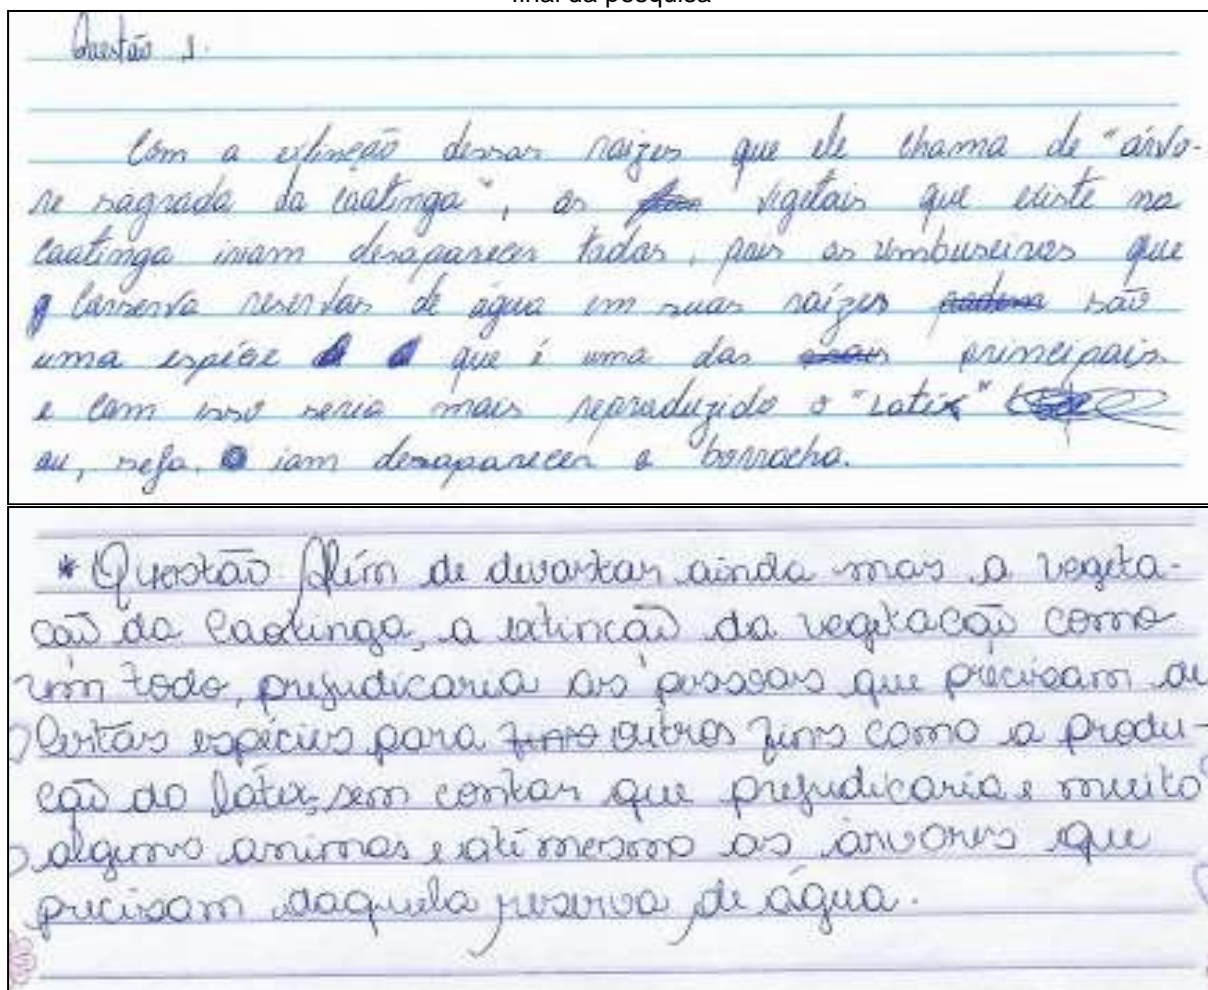 final da pesquisa
Questão 1.
Com a extinção dessas raizes que ele chama de "árvo-
re sagrada da caatinga", as vigetais que existe na
caatinga iriam desaparecer todas, pois os umbuseiros que
conserva reservas de água em suas raízes são
uma espécie que é uma das principais
e com isso seria mais reproduzido o "Latix"
ou, seja, iam desaparecer a borracha.
* Questão Além de devastar ainda mais a vegeta-
cão da Caatinga, a extincão da vegetacão como
um todo, prejudicaria as pessoas que precisam de
certas espécies para fins outros fins como a produ-
cão do látex, sem contar que prejudicaria e muito
alguns animas e até mesmo as árvores que
precisam daquela reserva de água.